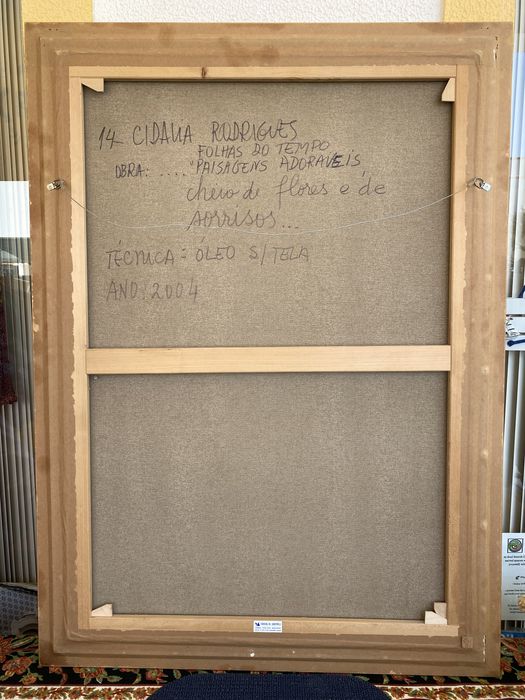 14- CIDALIA RODRIGUES
FOLHAS DO TEMPO
OBRA: .... "PAISAGENS ADORAVEIS,
cheio de flores e de
sorrisos...
TÉCNICA = ÓLEO S/TELA
ANO: 2004